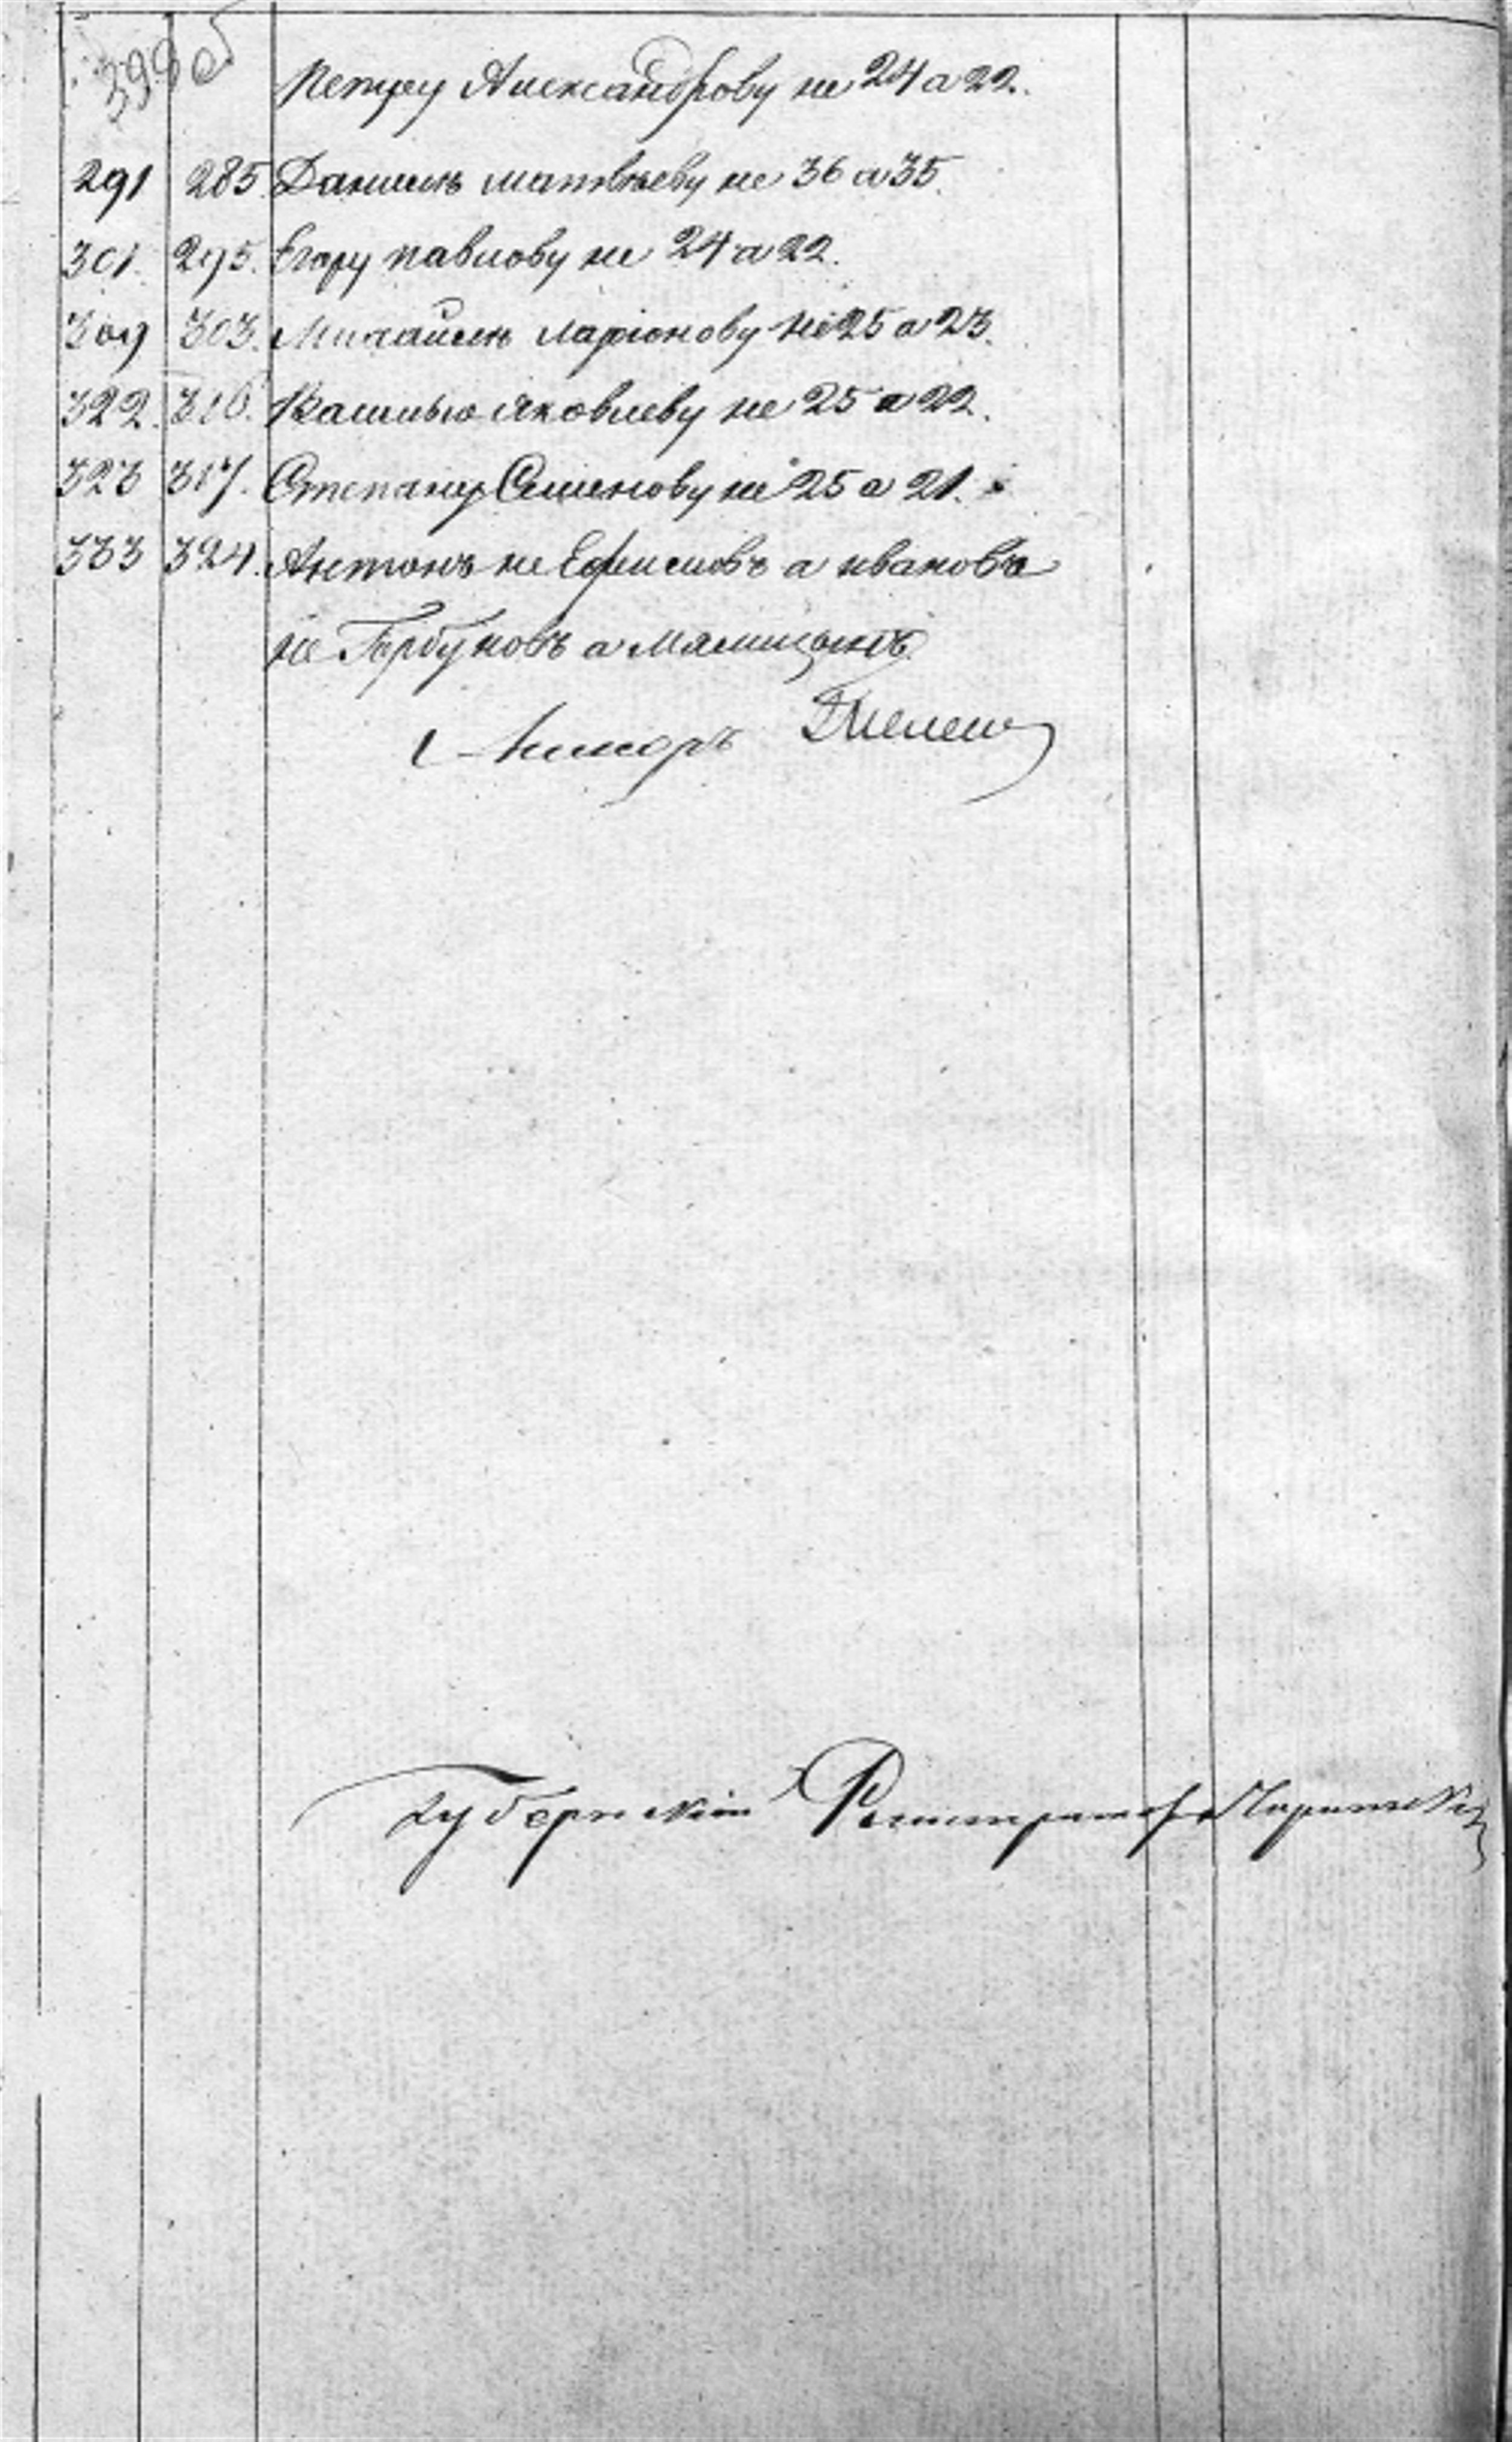 399 об
Петру Александрову не 24 а 22.
291 285. Данилѣ Матвѣеву не 36 а 35.
301. 295. Егору Павлову не 24 а 22.
309 303. Михайлѣ Ларіонову не 25 а 23.
322. 316. Василью Яковлеву не 25 а 22.
323 317. Степану Семенову не 25 а 21.
333 324. Антонъ не Ефимовъ а Ивановъ
не Горбуновъ а Мямицынъ
Губернскій Регистраторъ